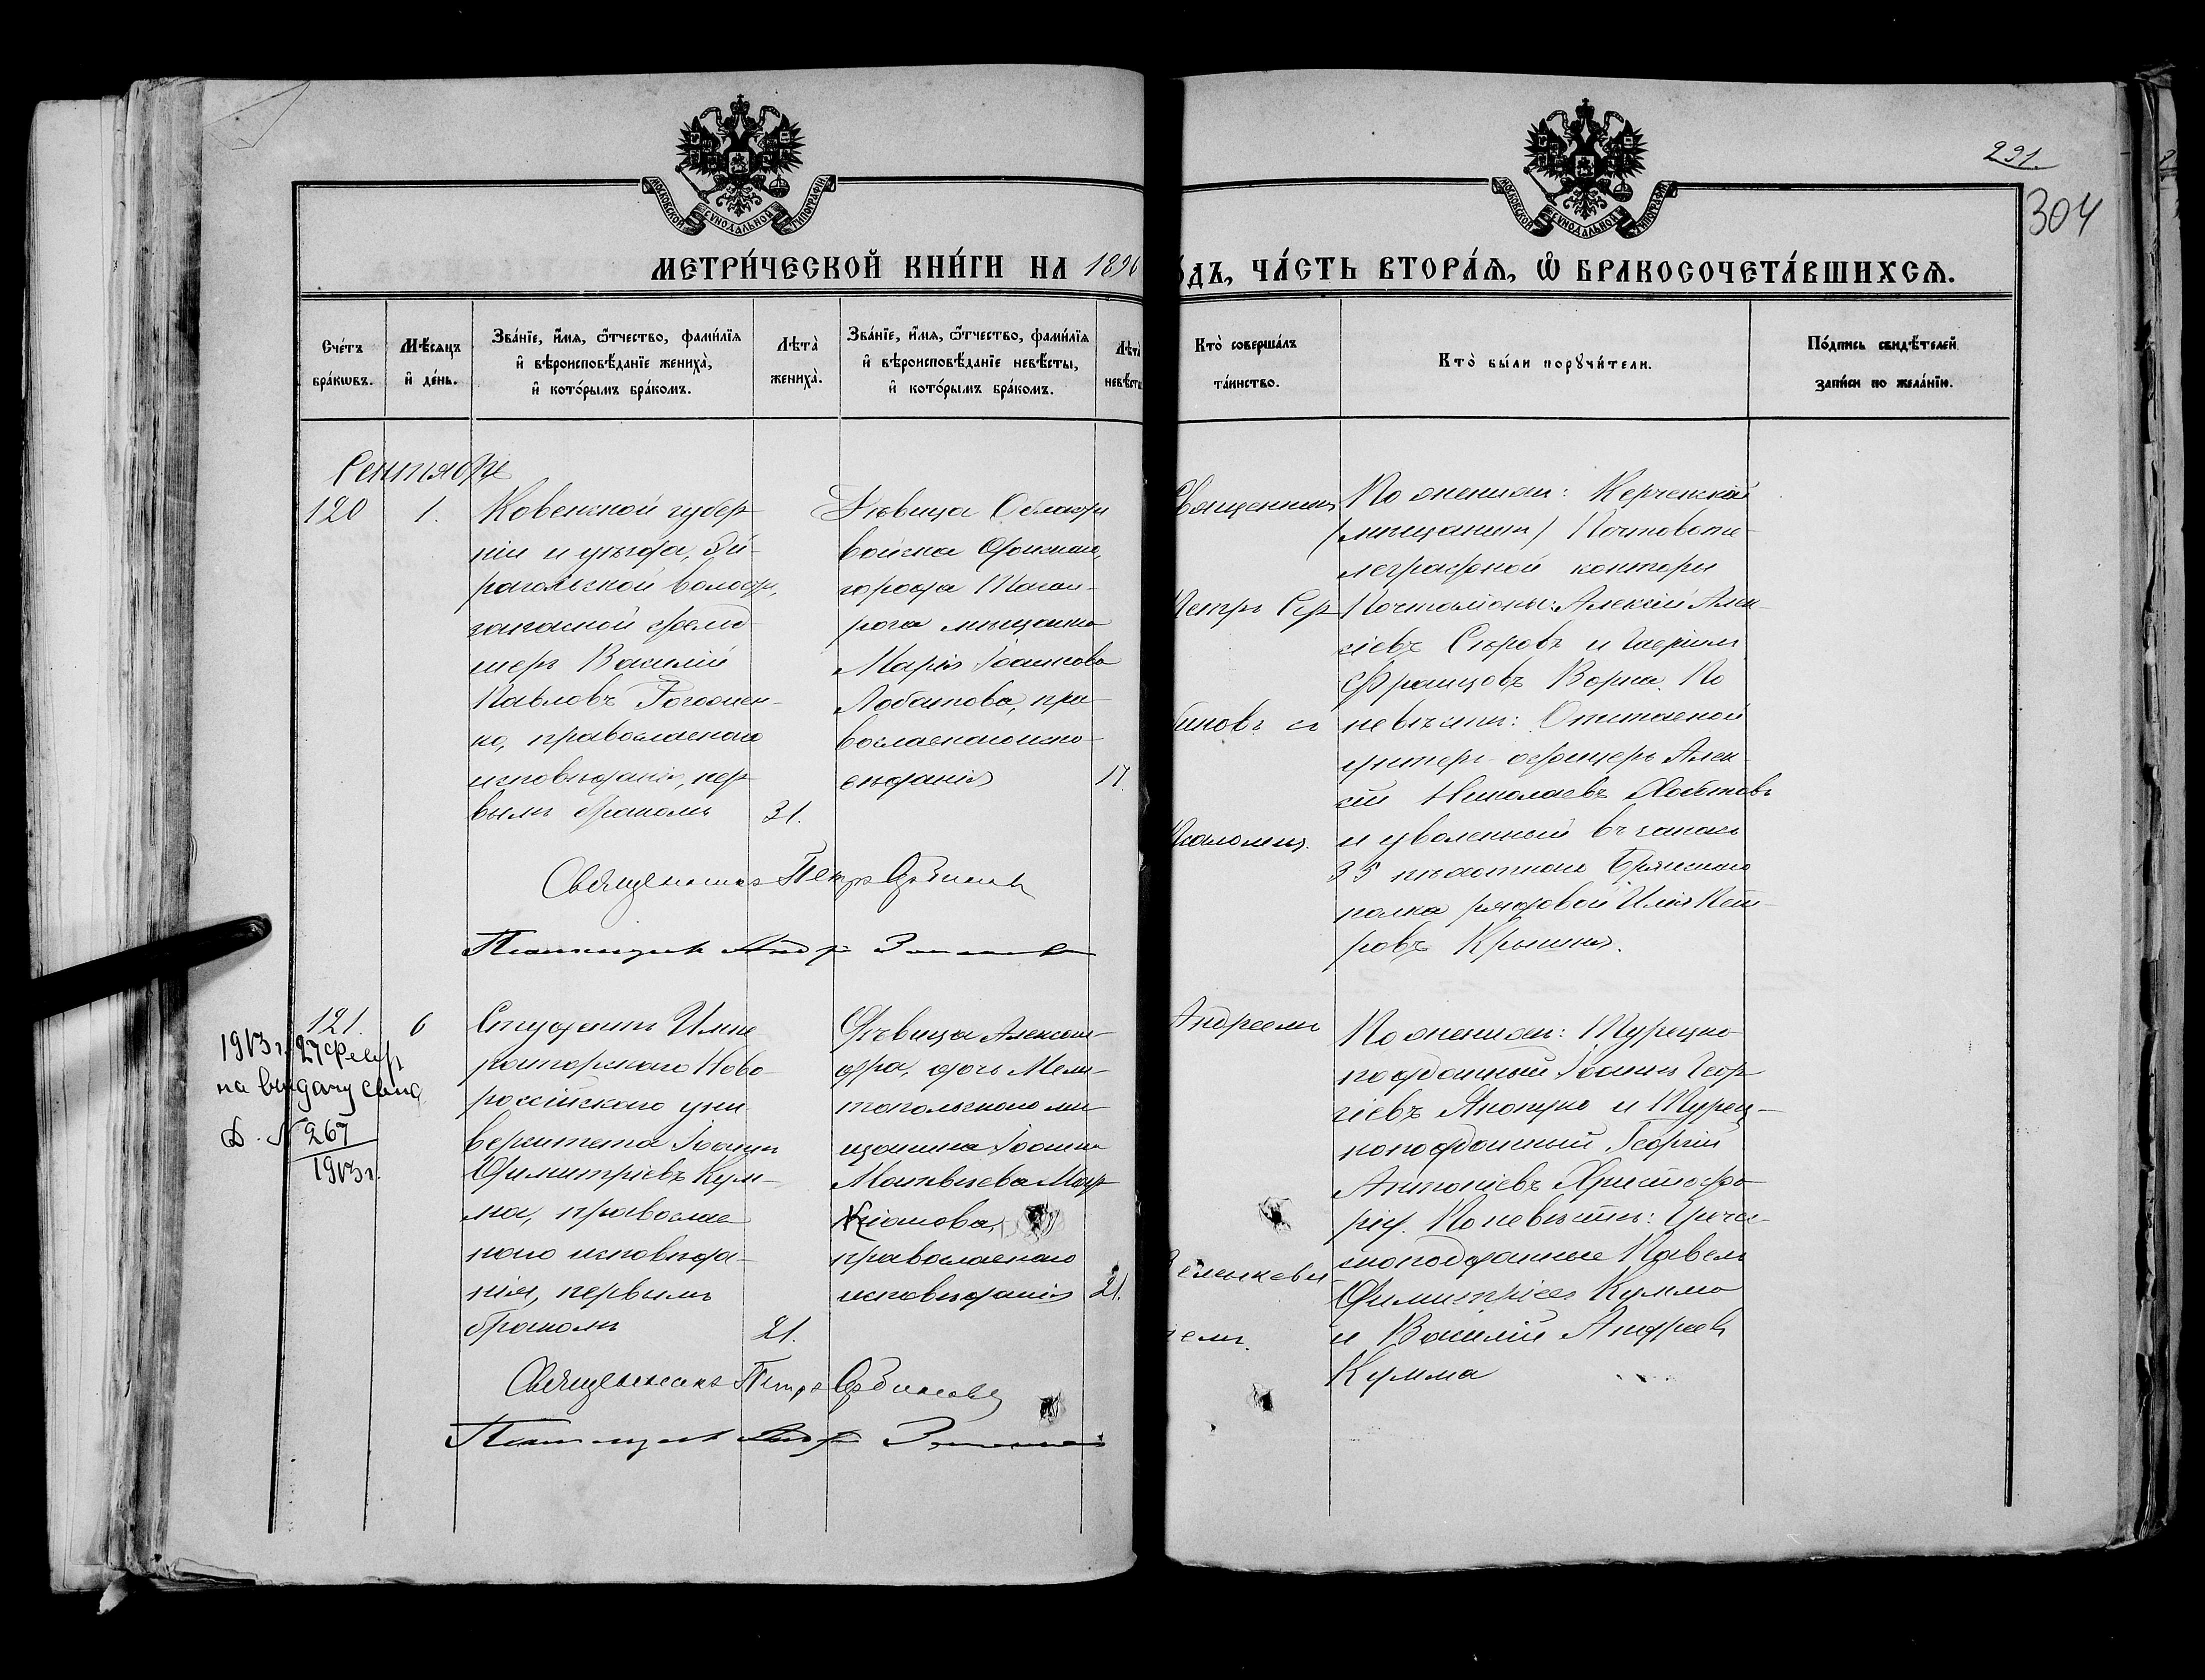 291
304
МОСКОВСКОЙ СѴНОДАЛЬНОЙ ТИПОГРАФІИ
МОСКОВСКОЙ СѴНОДАЛЬНОЙ ТИПОГРАФІИ
МЕТРИ́ЧЕСКОЙ КНИ́ГИ НА 1896
О́ДЪ, ЧА́СТЬ ВТОРА́Ѧ, Ѡ҆ БРАКОСОЧЕТА́ВШИХСѦ.
Сче́тъ бра́кωвъ.
Мѣ́сѧцъ и҆ де́нь.
Зва́нїе, и҆́мѧ, ѻ҆́тчество, фами́лїѧ и҆ вѣроисповѣ́данїе жениха̀, и҆ кото́рымъ бра́комъ.
Лѣта̀ жениха̀.
Зва́нїе, и҆́мѧ, ѻ҆́тчество, фами́лїѧ и҆ вѣроисповѣ́данїе невѣ́сты, и҆ кото́рымъ бра́комъ.
Лѣта̀ невѣ́сты
Кто̀ соверша́лъ та́инство.
Кто̀ бы́ли порꙋчи́тели.
По́дпись свидѣ́телей за́писи по жела́нїю.
Сентябрь
120
1.
Ковенской губер-
ніи и уѣзда, Эй-
рагольской волости,
запасной фельд-
шеръ Василій
Павловъ
ко, православнаго
исповѣданія, пер-
вымъ бракомъ
31.
Дѣвица Области
войска Донскаго,
города Таган-
рога мѣщанка
Марія Іоаннова
Лобанова, пра-
вославнаго испо-
вѣданія
17.
Священникъ
Петръ Сер
биновъ съ
Псаломщ.
По женихѣ: Керченской
(мѣщанинъ) Почтовоте-
леграфной конторы
Почталіоны: Алексѣй Алек-
сѣевъ Сѣровъ и
Францовъ Ворна. По
невѣстѣ: Отставной
унтеръ-офицеръ Алек-
сѣй Николаевъ
и уволенный въ запасъ
35 пѣхотнаго Брянскаго
полка рядовой Илія Пет-
ровъ
Священникъ Петръ Сербиновъ
Псаломщикъ Андр
121.
6
1913 г. 27 февр
на
Д. № 267
1913 г.
Студентъ Импе-
раторскаго Ново-
россійскаго уни-
верситета Іоаннъ
Димитріевъ Кум-
ма, православ-
наго исповѣда-
нія, первымъ
бракомъ
21.
Дѣвица Алексан-
дра, дочь Мели-
топольскаго мѣ-
щанина Іоанна
Матвѣева Мар-
кіанова,
православнаго
исповѣданія
21.
Андреемъ
По женихѣ: Турецко-
подданный Іоаннъ Геор-
гіевъ и Турец-
коподданный Георгій
Антоніевъ Христофо-
риди. По невѣстѣ: Грече-
скоподданные Павелъ
Димитріевъ Кумма
и Василій Андреевъ
Кумма
Священникъ Петръ Сербиновъ
Псаломщикъ Андр